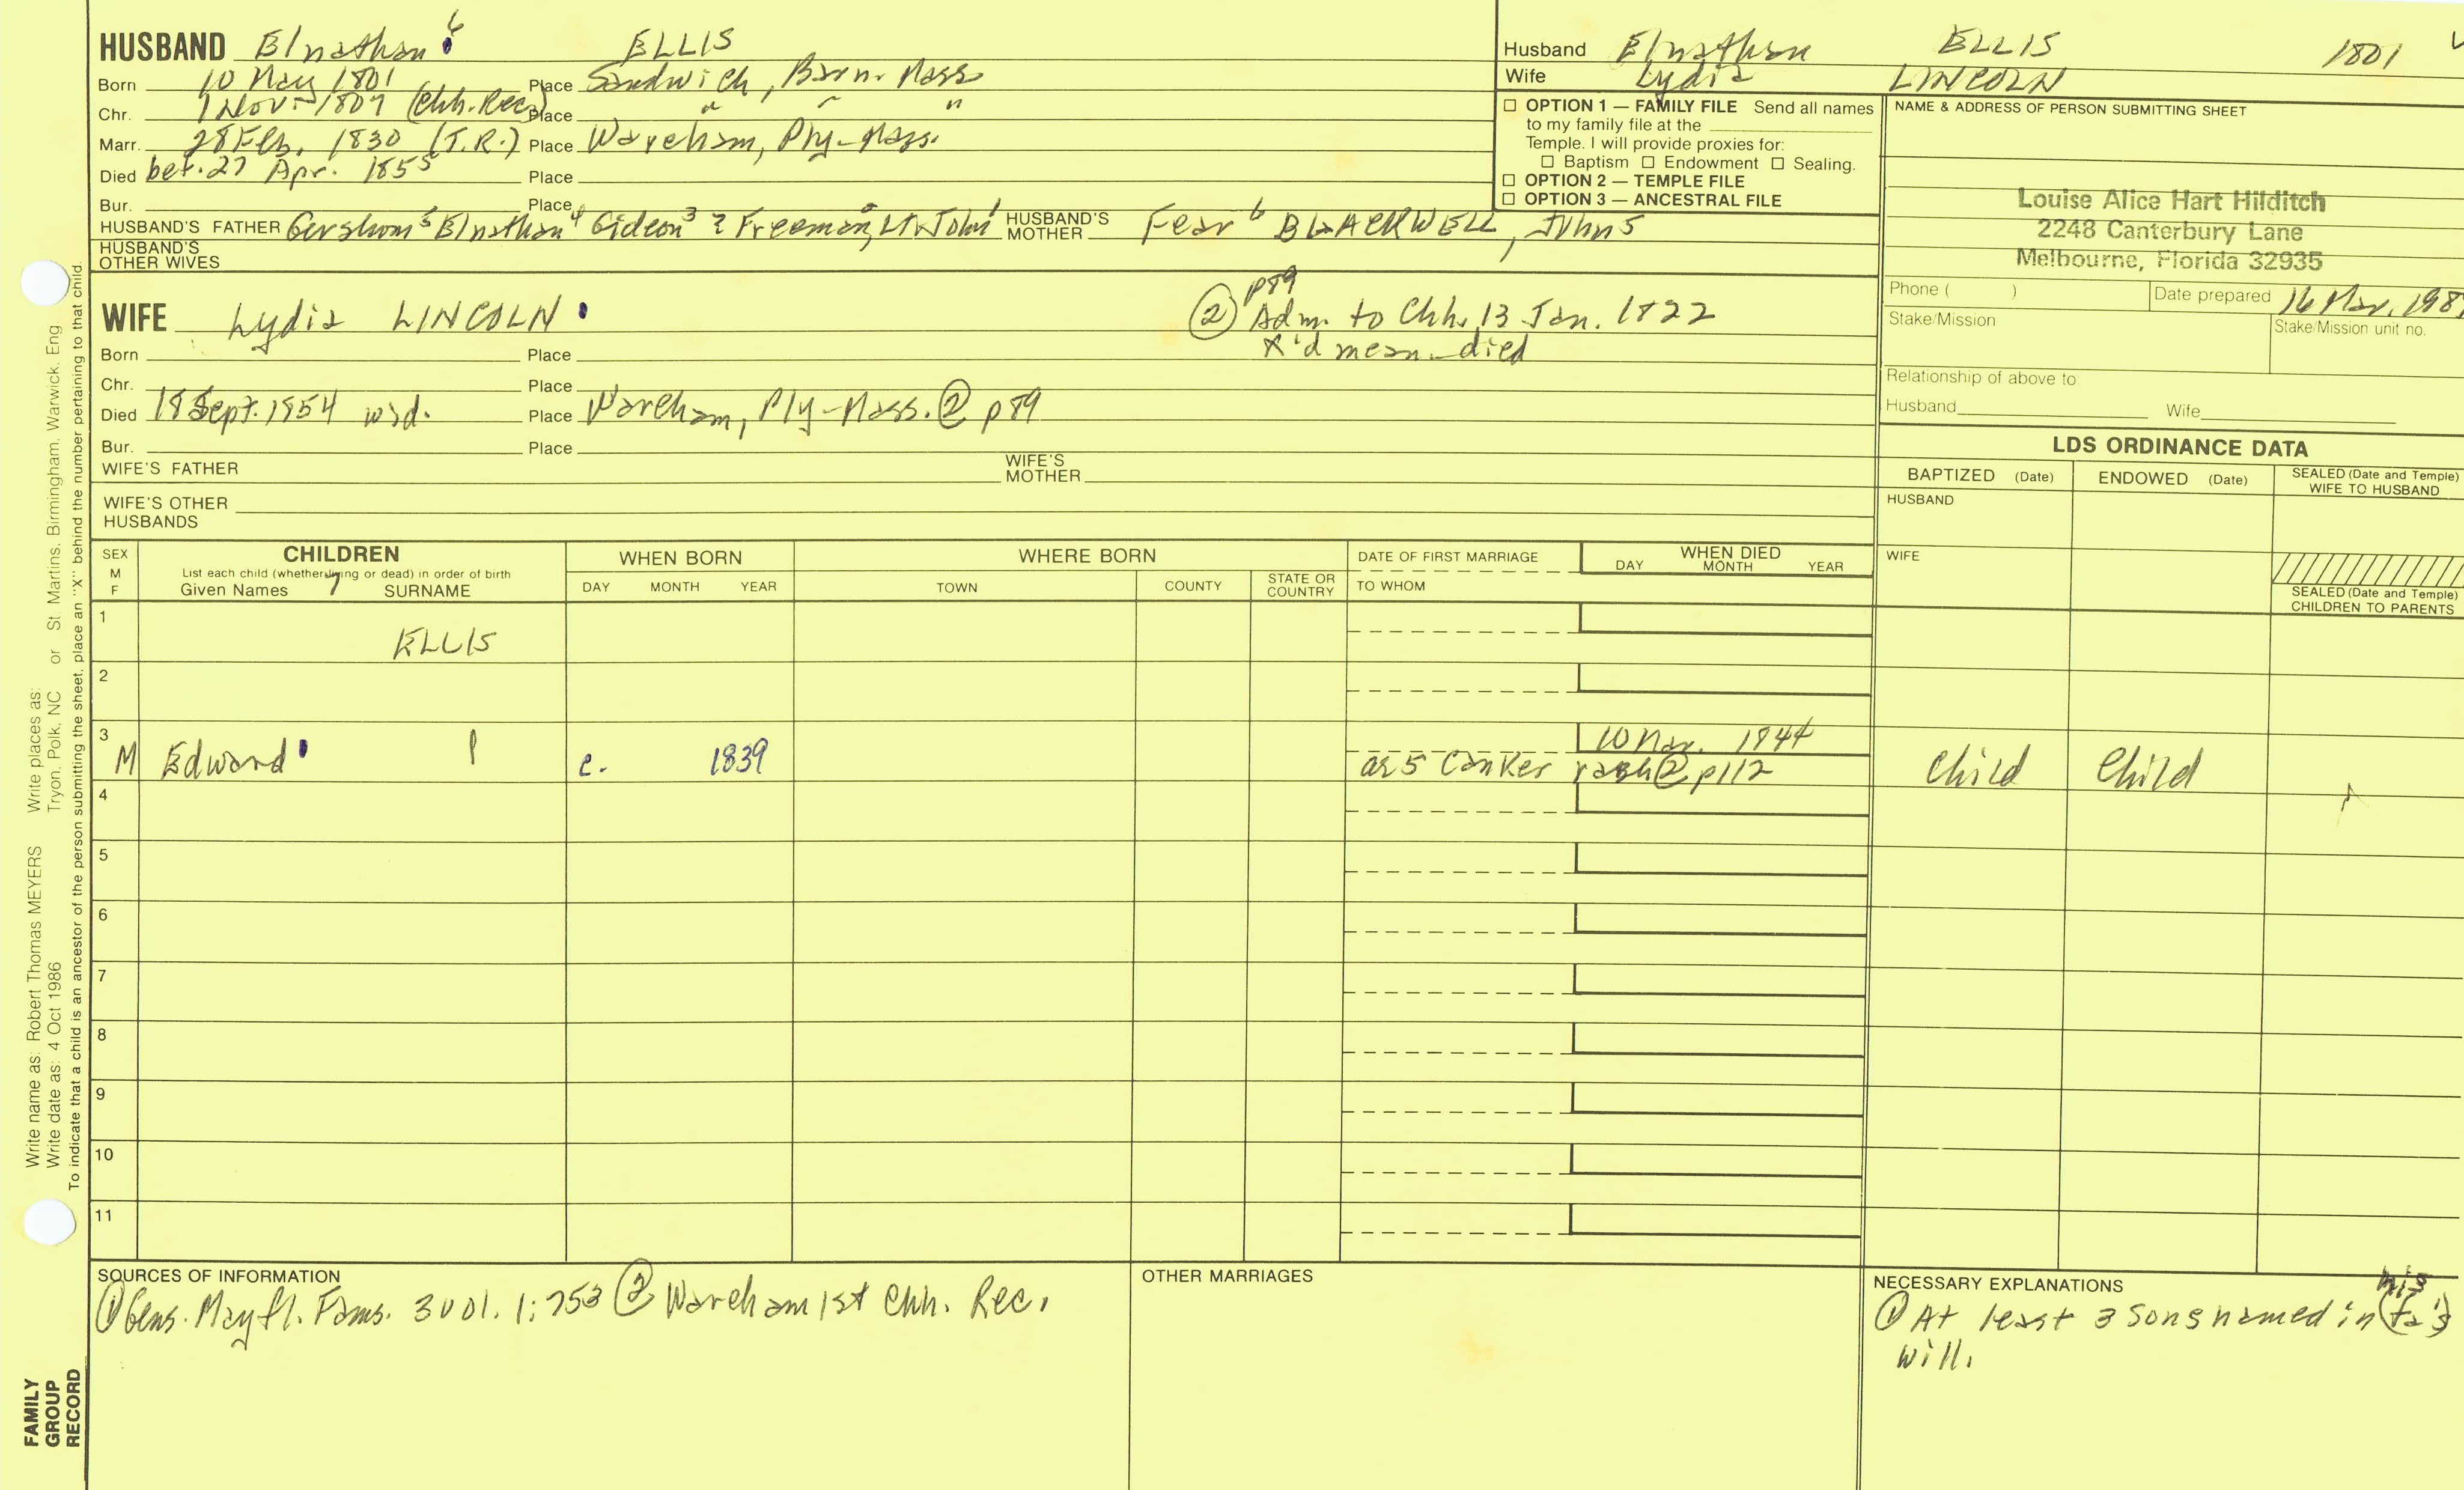 HUSBAND Elnathan 6 ELLIS
Born 10 May 1801 Place Sandwich, Barn. Mass
Chr. 1 Nov. 1807 (Chh. Rec.) Place " " "
Marr. 28 Feb. 1830 (T.R.) Place Wareham, Ply-Mass.
Died bef. 27 Apr. 1855 Place
Bur. Place
HUSBAND'S FATHER Gershom5 Elnathan4 Gideon3 2 Freeman, Lt. John1 HUSBAND'S MOTHER Fear6 BLACKWELL, John5
HUSBAND'S OTHER WIVES
Husband Elnathan ELLIS 1801
Wife Lydia LINCOLN
☐ OPTION 1 — FAMILY FILE Send all names
to my family file at the
Temple. I will provide proxies for:
☐ Baptism ☐ Endowment ☐ Sealing.
☐ OPTION 2 — TEMPLE FILE
☐ OPTION 3 — ANCESTRAL FILE
NAME & ADDRESS OF PERSON SUBMITTING SHEET
Louise Alice Hart Hilditch
2248 Canterbury Lane
Melbourne, Florida 32935
Phone ( ) Date prepared 16 Mar. 198
Stake/Mission Stake/Mission unit no.
Relationship of above to
Husband Wife
WIFE Lydia LINCOLN
② p89 Adm. to Chh. 13 Jan. 1822
X'd mean. died
Born Place
Chr. Place
Died 18 Sept. 1854 wid. Place Wareham, Ply-Mass. ② p89
Bur. Place
WIFE'S FATHER WIFE'S MOTHER
WIFE'S OTHER HUSBANDS
LDS ORDINANCE DATA
BAPTIZED (Date) ENDOWED (Date) SEALED (Date and Temple) WIFE TO HUSBAND
HUSBAND
WIFE
SEALED (Date and Temple) CHILDREN TO PARENTS
SEX M F
CHILDREN
List each child (whether living or dead) in order of birth
Given Names 7 SURNAME
WHEN BORN
DAY MONTH YEAR
WHERE BORN
TOWN COUNTY STATE OR COUNTRY
DATE OF FIRST MARRIAGE
TO WHOM
WHEN DIED
DAY MONTH YEAR
1 ELLIS
2
3 M Edward c. 1839 10 Mar. 1844
ae 5 Canker rash ② p112 Child Child
4
5
6
7
8
9
10
11
SOURCES OF INFORMATION
① Gens. Mayfl. Fams. 3 vol. 1:753 ② Wareham 1st Chh. Rec.
OTHER MARRIAGES
NECESSARY EXPLANATIONS
his
① At least 3 sons named in (fa's)
will.
Write name as: Robert Thomas MEYERS Write places as: St Martins, Birmingham, Warwick, Eng
Write date as: 4 Oct 1986 Tryon, Polk, NC or
To indicate that a child is an ancestor of the person submitting the sheet, place an "X" behind the number pertaining to that child.
FAMILY
GROUP
RECORD